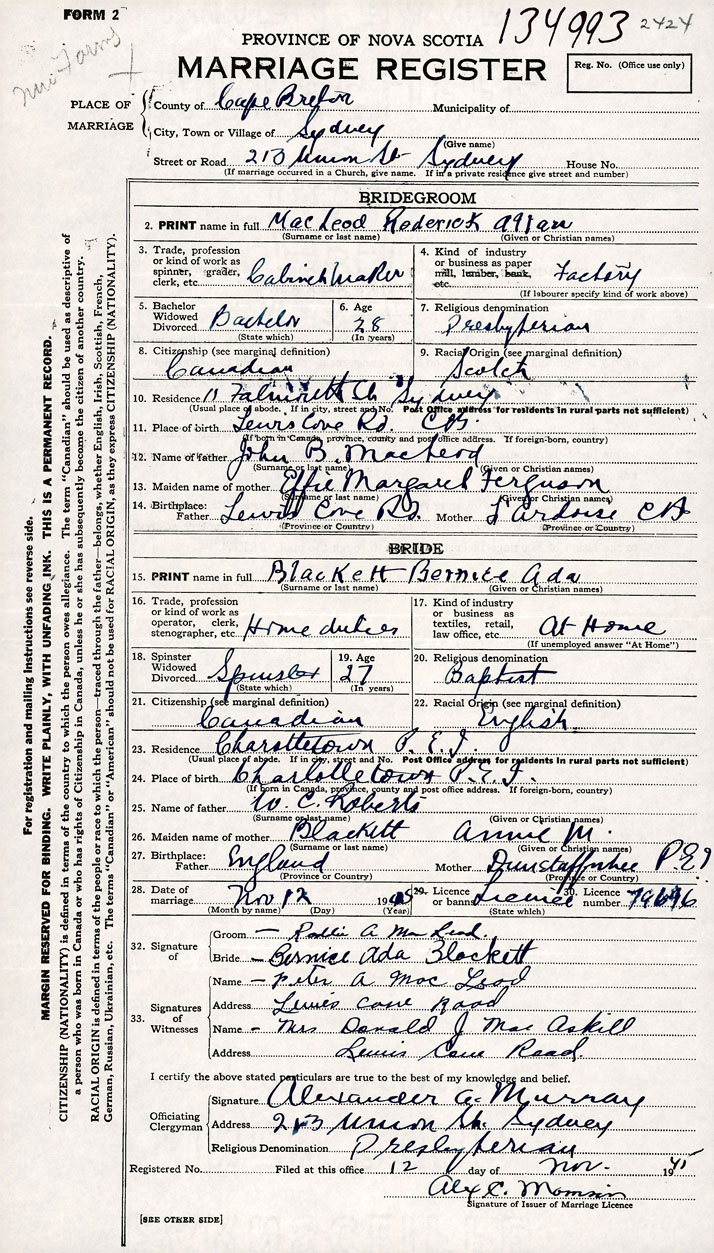 FORM 2
134993 2424
New Forms
PROVINCE OF NOVA SCOTIA
MARRIAGE REGISTER
Reg. No. (Office use only)
PLACE OF MARRIAGE
County of Cape Breton Municipality of
City, Town or Village of Sydney
(Give name)
Street or Road 213 Union St Sydney House No.
(If marriage occurred in a Church, give name. If in a private residence give street and number)
BRIDEGROOM
2. PRINT name in full MacLeod Roderick Allan
(Surname or last name) (Given or Christian names)
3. Trade, profession or kind of work as spinner, grader, clerk, etc. Cabinet Maker
4. Kind of industry or business as paper mill, lumber, bank, etc. Factory
(If labourer specify kind of work above)
5. Bachelor Widowed Divorced Bachelor
(State which)
6. Age 28
(In years)
7. Religious denomination
Presbyterian
8. Citizenship (see marginal definition)
Canadian
9. Racial Origin (see marginal definition)
Scotch
10. Residence 11 Falmouth St Sydney
(Usual place of abode. If in city, street and No. Post Office address for residents in rural parts not sufficient)
11. Place of birth Lewis Cove Rd. C.B.
(If born in Canada, province, county and post office address. If foreign-born, country)
12. Name of father John B. MacLeod
(Surname or last name) (Given or Christian names)
13. Maiden name of mother Effie Margaret Ferguson
(Surname or last name) (Given or Christian names)
14. Birthplace: Father Lewis Cove Rd. Mother L'Ardoise CB
(Province or Country) (Province or Country)
BRIDE
15. PRINT name in full Blackett Bernice Ada
(Surname or last name) (Given or Christian names)
16. Trade, profession or kind of work as operator, clerk, stenographer, etc. Home duties
17. Kind of industry or business as textiles, retail, law office, etc. At Home
(If unemployed answer "At Home")
18. Spinster Widowed Divorced Spinster
(State which)
19. Age 27
(In years)
20. Religious denomination
Baptist
21. Citizenship (see marginal definition)
Canadian
22. Racial Origin (see marginal definition)
English
23. Residence Charottetown P.E.I.
(Usual place of abode. If in city, street and No. Post Office address for residents in rural parts not sufficient)
24. Place of birth Charlottetown P.E.I.
(If born in Canada, province, county and post office address. If foreign-born, country)
25. Name of father W. C. Roberts
(Surname or last name) (Given or Christian names)
26. Maiden name of mother Blackett Annie M.
(Surname or last name) (Given or Christian names)
27. Birthplace: Father England Mother P.E.I
(Province or Country) (Province or Country)
28. Date of marriage Nov 12 194
(Month by name) (Day) (Year)
29. Licence or banns Licence
(State which)
30. Licence number
32. Signature of
Groom — A MacLeod
Bride — Bernice Ada Blackett
33. Signatures of Witnesses
Name — Peter A MacLeod
Address Lewis Cove Road
Name — Mrs Donald J MacAskill
Address Lewis Cove Road
I certify the above stated particulars are true to the best of my knowledge and belief.
Officiating Clergyman
Signature Alexander A. Murray
Address 213 Union St. Sydney
Religious Denomination Presbyterian
Registered No. Filed at this office 12 day of Nov. 19
Alex C.
Signature of Issuer of Marriage Licence
[SEE OTHER SIDE]
For registration and mailing instructions see reverse side.
MARGIN RESERVED FOR BINDING. WRITE PLAINLY, WITH UNFADING INK. THIS IS A PERMANENT RECORD.
CITIZENSHIP (NATIONALITY) is defined in terms of the country to which the person owes allegiance. The term "Canadian" should be used as descriptive of
a person who was born in Canada or who has rights of Citizenship in Canada, unless he or she has subsequently become the citizen of another country.
RACIAL ORIGIN is defined in terms of the people or race to which the person—traced through the father—belongs, whether English, Irish, Scottish, French,
German, Russian, Ukrainian, etc. The terms "Canadian" or "American" should not be used for RACIAL ORIGIN, as they express CITIZENSHIP (NATIONALITY).